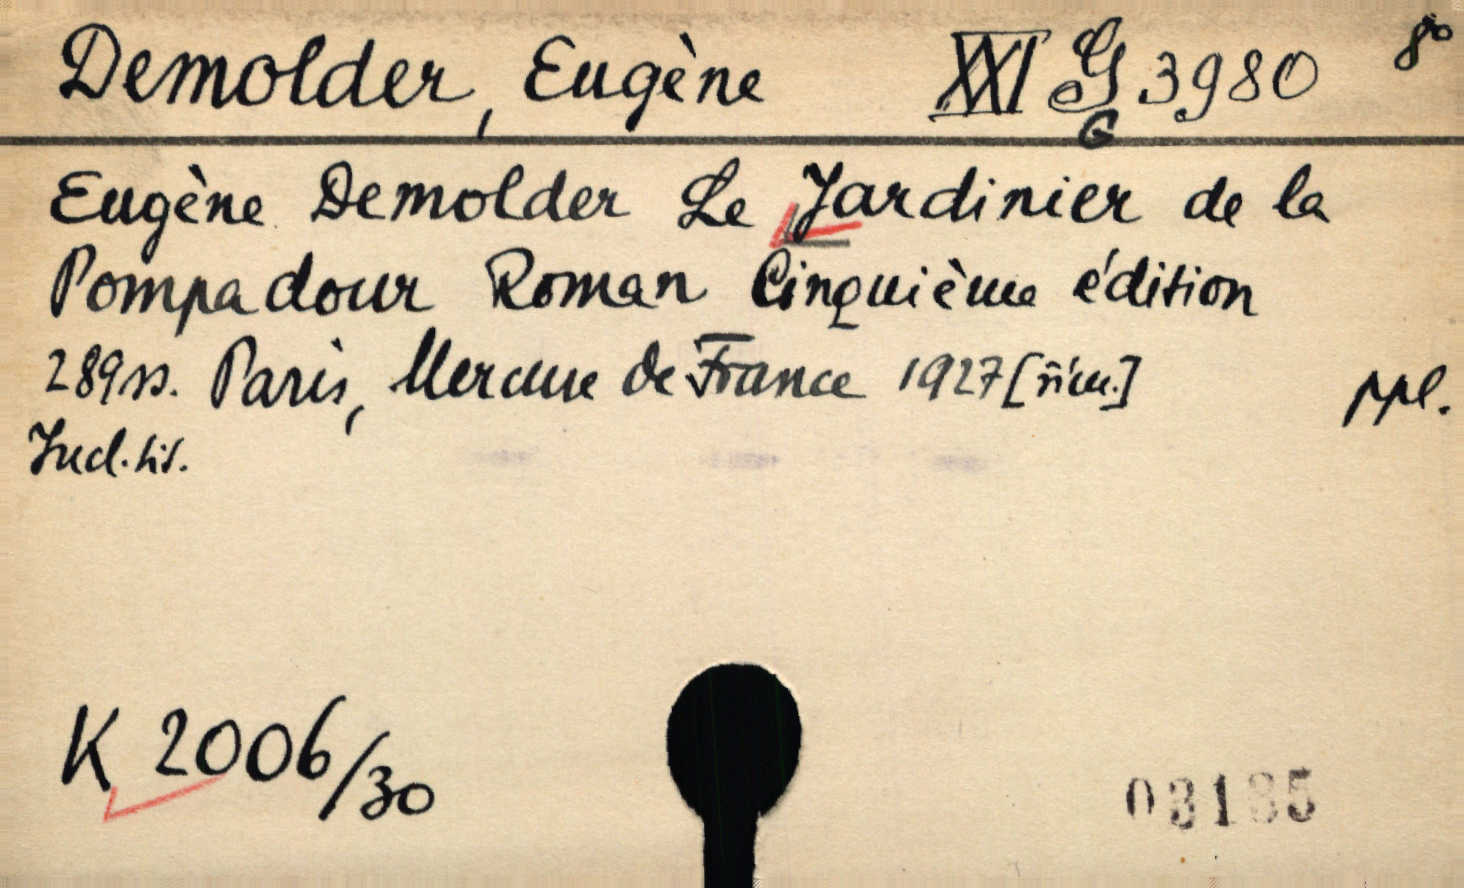 Demolder, Eugène XXI G 3980 8°
G
Eugène Demolder Le Jardinier de la
Pompadour Roman Cinquième édition
289 ss. Paris, Mercure de France 1927 ppl.
Jud. tit.
K 2006/30
03185